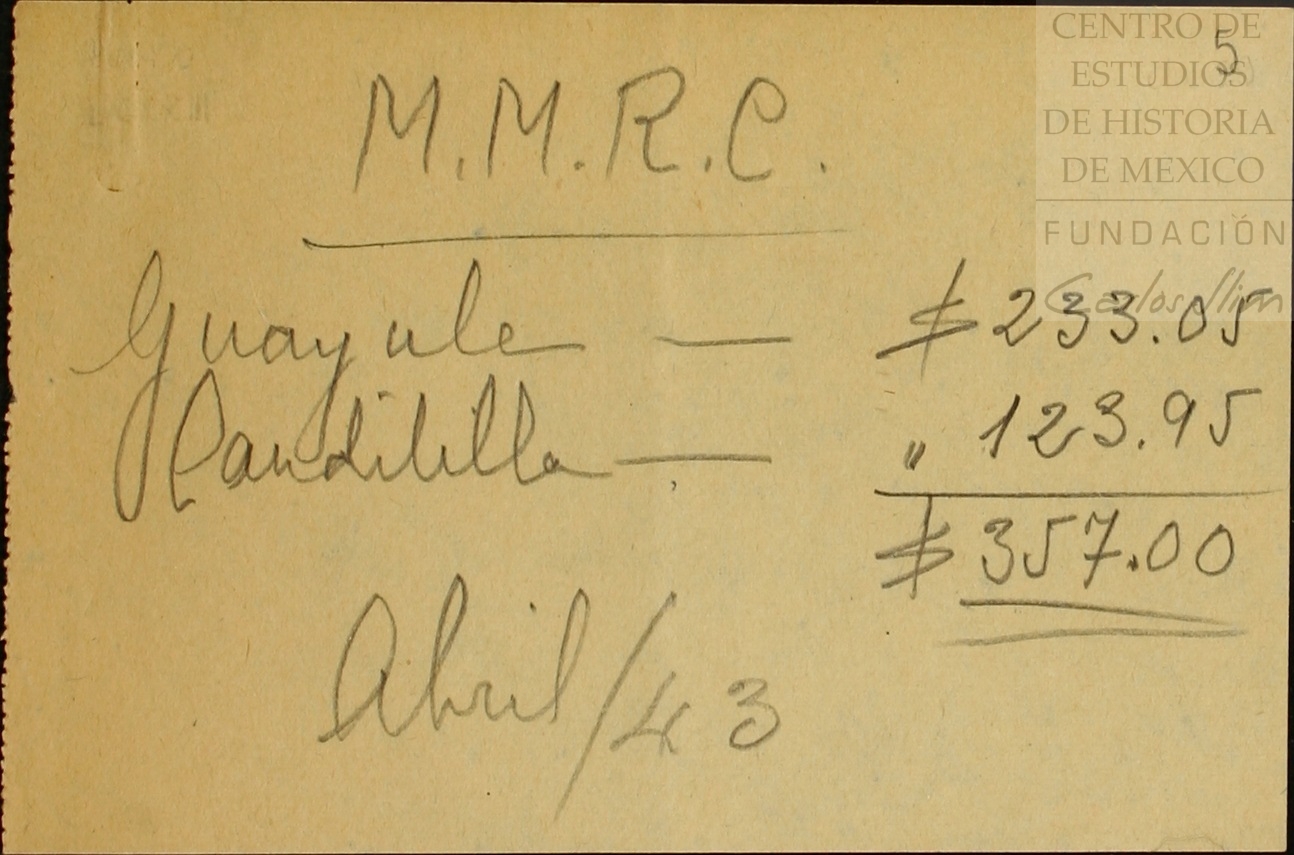 CENTRO DE
ESTUDIOS
DE HISTORIA
DE MEXICO
FUNDACIÓN
Carlos Slim
5
M.M.R.C.
Guayule — $ 233.05
Candelilla — " 123.95
$ 357.00
Abril/43